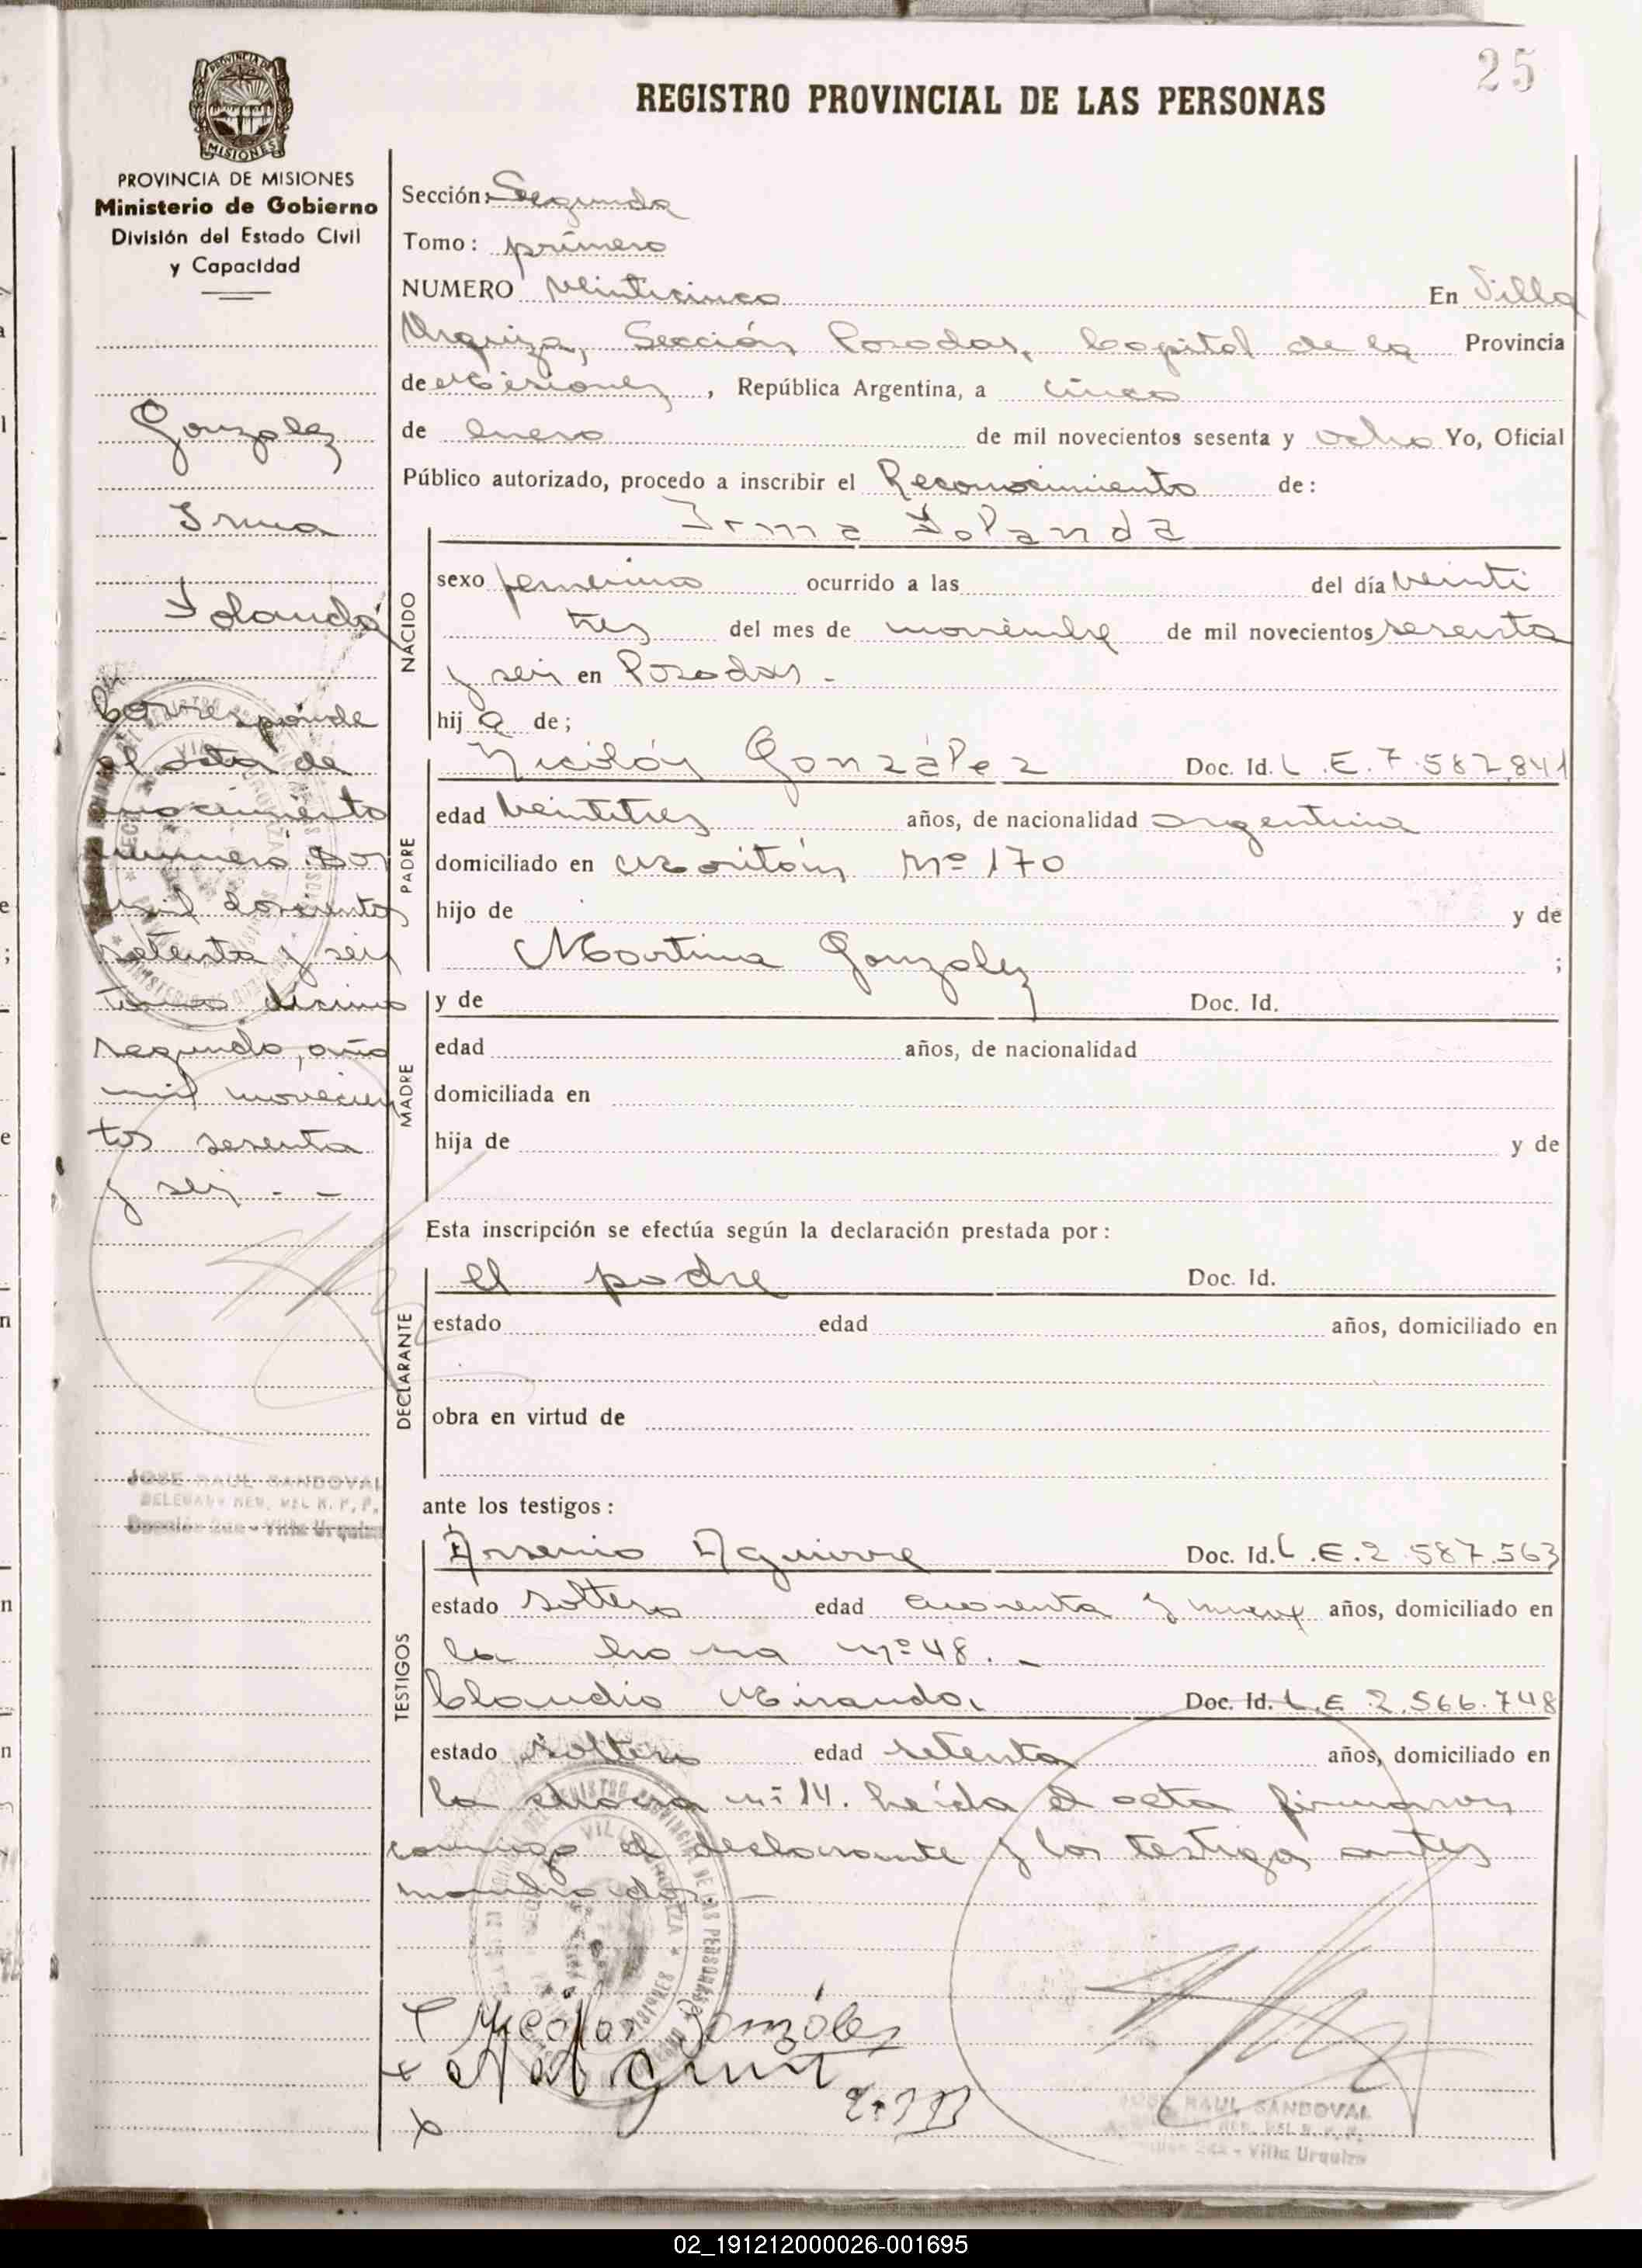 25
REGISTRO PROVINCIAL DE LAS PERSONAS
PROVINCIA DE MISIONES
MISIONES
PROVINCIA DE MISIONES
Ministerio de Gobierno
División del Estado Civil
y Capacidad
Gonzalez
Irma
Yolanda
Corresponde
al acta de
nacimiento
numero dos
mil doscientos
setenta y seis
tomo décimo
segundo, año
mil novecien
tos sesenta
y seis - -
JOSE RAUL SANDOVAL
Sección 2da - Villa Urquiza
Sección: Segunda
Tomo: primero
NUMERO Veinticinco En Villa
Urquiza, Sección Posadas, Capital de la Provincia
de Misiones, República Argentina, a cinco
de enero de mil novecientos sesenta y ocho Yo, Oficial
Público autorizado, procedo a inscribir el Reconocimiento de:
Irma Yolanda
NACIDO
sexo femenino ocurrido a las del día veinti
tres del mes de noviembre de mil novecientos sesenta
y seis en Posadas -
hij a de;
PADRE
Nicolás González Doc. Id. L.E. 7.587.841
edad veintitres años, de nacionalidad argentina
domiciliado en Nº 170
hijo de y de
Martina Gonzalez ;
MADRE
y de Doc. Id.
edad años, de nacionalidad
domiciliada en
hija de y de
Esta inscripción se efectúa según la declaración prestada por:
DECLARANTE
el padre Doc. Id.
estado edad años, domiciliado en
obra en virtud de
ante los testigos:
TESTIGOS
Arsenio Aguirre Doc. Id. L.E. 2.587.563
estado soltero edad cuarenta y nueve años, domiciliado en
la nº 48. -
Claudio Miranda Doc. Id. L.E 2.566.748
estado soltero edad setenta años, domiciliado en
la chacra nº 14. Leída el acta firmaron
conmigo el declarante y los testigos antes
Nicolas González
JOSE RAUL SANDOVAL
Sección 2da - Villa Urquiza
02_191212000026-001695